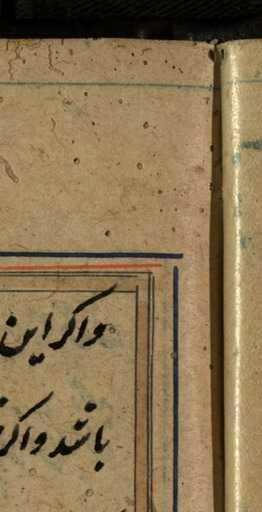 واکر این
باشد واکر